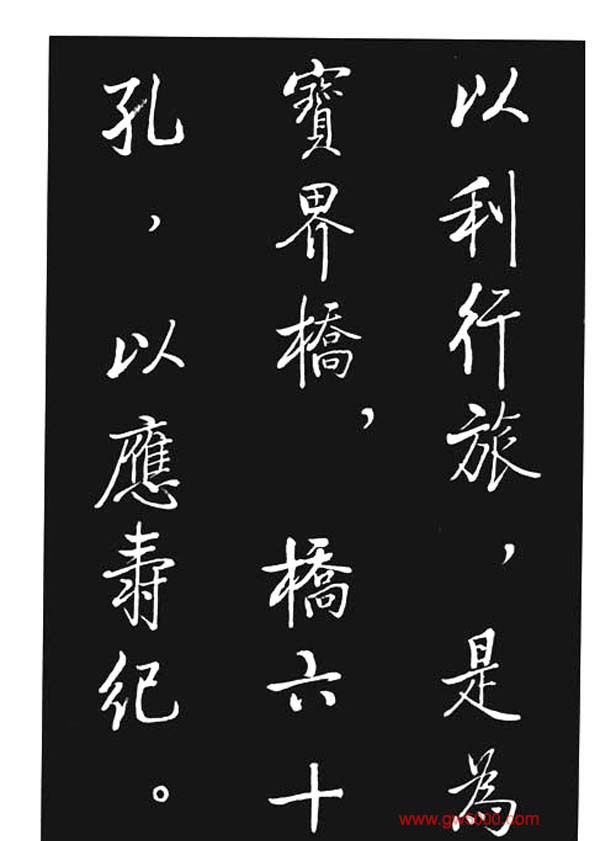 以利行旅，是為
寶界橋，橋六十
孔，以應壽纪。
www.gw5000.com